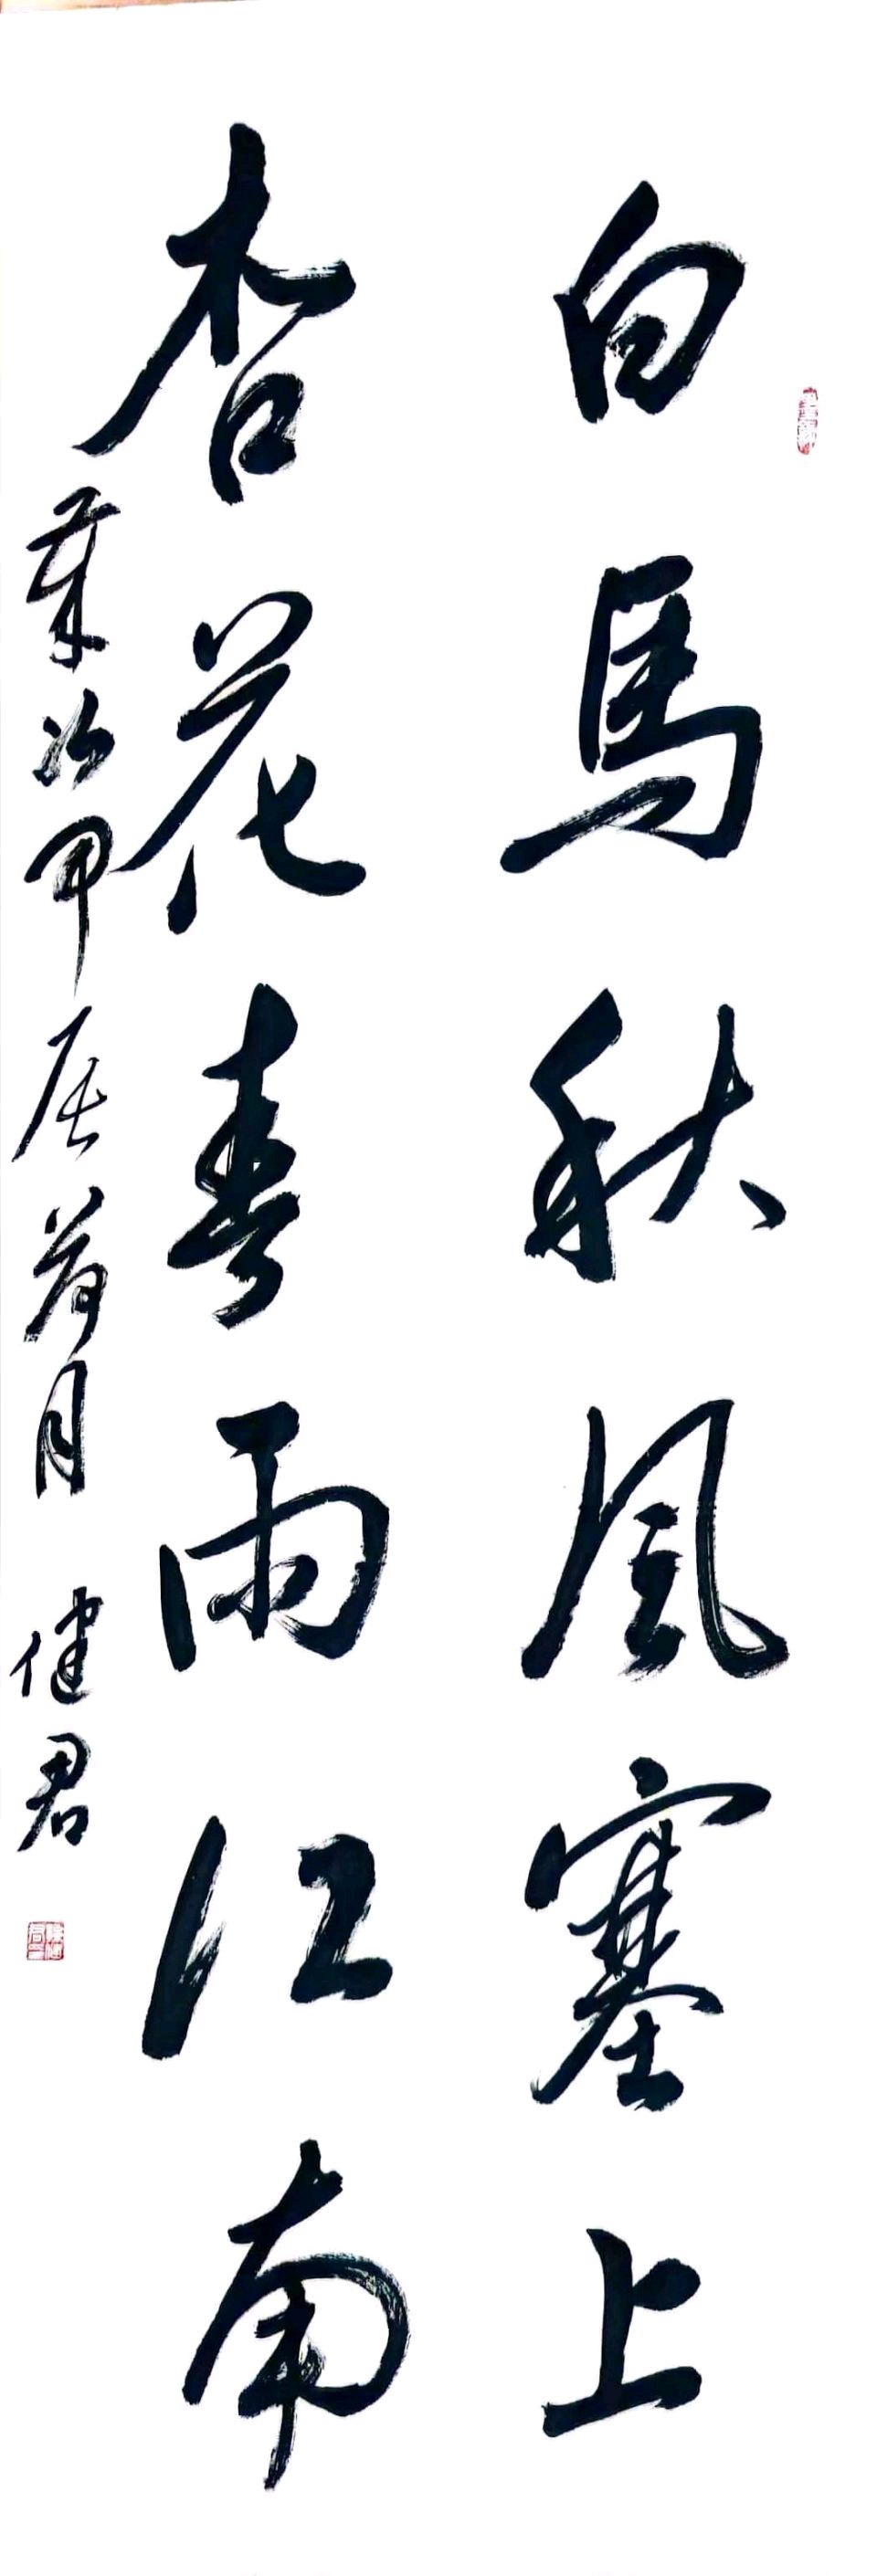 白馬秋風塞上
杏花春雨江南
歲次甲辰荷月 健君